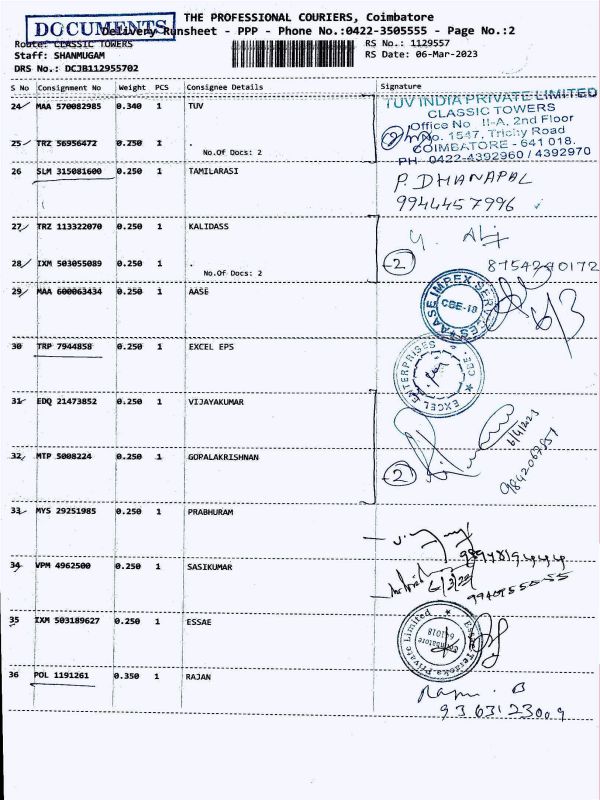 THE PROFESSIONAL COURIERS, Coimbatore
DOCUMENTS
Delivery Runsheet - PPP - Phone No.:0422-3505555 - Page No.:2
Route: CLASSIC TOWERS
RS No.: 1129557
Staff: SHANMUGAM
RS Date: 06-Mar-2023
DRS No.: DCJB112955702
S No Consignment No Weight PCS Consignee Details Signature
24 MAA 570082985 0.340 1 TUV
TUV INDIA PRIVATE LIMITED
CLASSIC TOWERS
Office No II-A, 2nd Floor
No. 1547, Trichy Road
COIMBATORE - 641 018.
PH 0422-4392960 / 4392970
25 TRZ 56956472 0.250 1 .
No.Of Docs: 2
26 SLM 315081600 0.250 1 TAMILARASI
P. DHANAPAL
9944457996
27 TRZ 113322070 0.250 1 KALIDASS
28 IXM 503055089 0.250 1 .
No.Of Docs: 2
2
8754240172
29 MAA 600063434 0.250 1 AASE
AASE IMPEX SERVICES
CBE-18
6/3
30 TRP 7944858 0.250 1 EXCEL EPS
EXCEL ENTERPRISES
CBE.
31 EDQ 21473852 0.250 1 VIJAYAKUMAR
32 MTP 5008224 0.250 1 GOPALAKRISHNAN
2
33 MYS 29251985 0.250 1 PRABHURAM
34 VPM 4962500 0.250 1 SASIKUMAR
35 IXM 503189627 0.250 1 ESSAE
Private Limited
Coimbatore
641018
36 POL 1191261 0.350 1 RAJAN
B